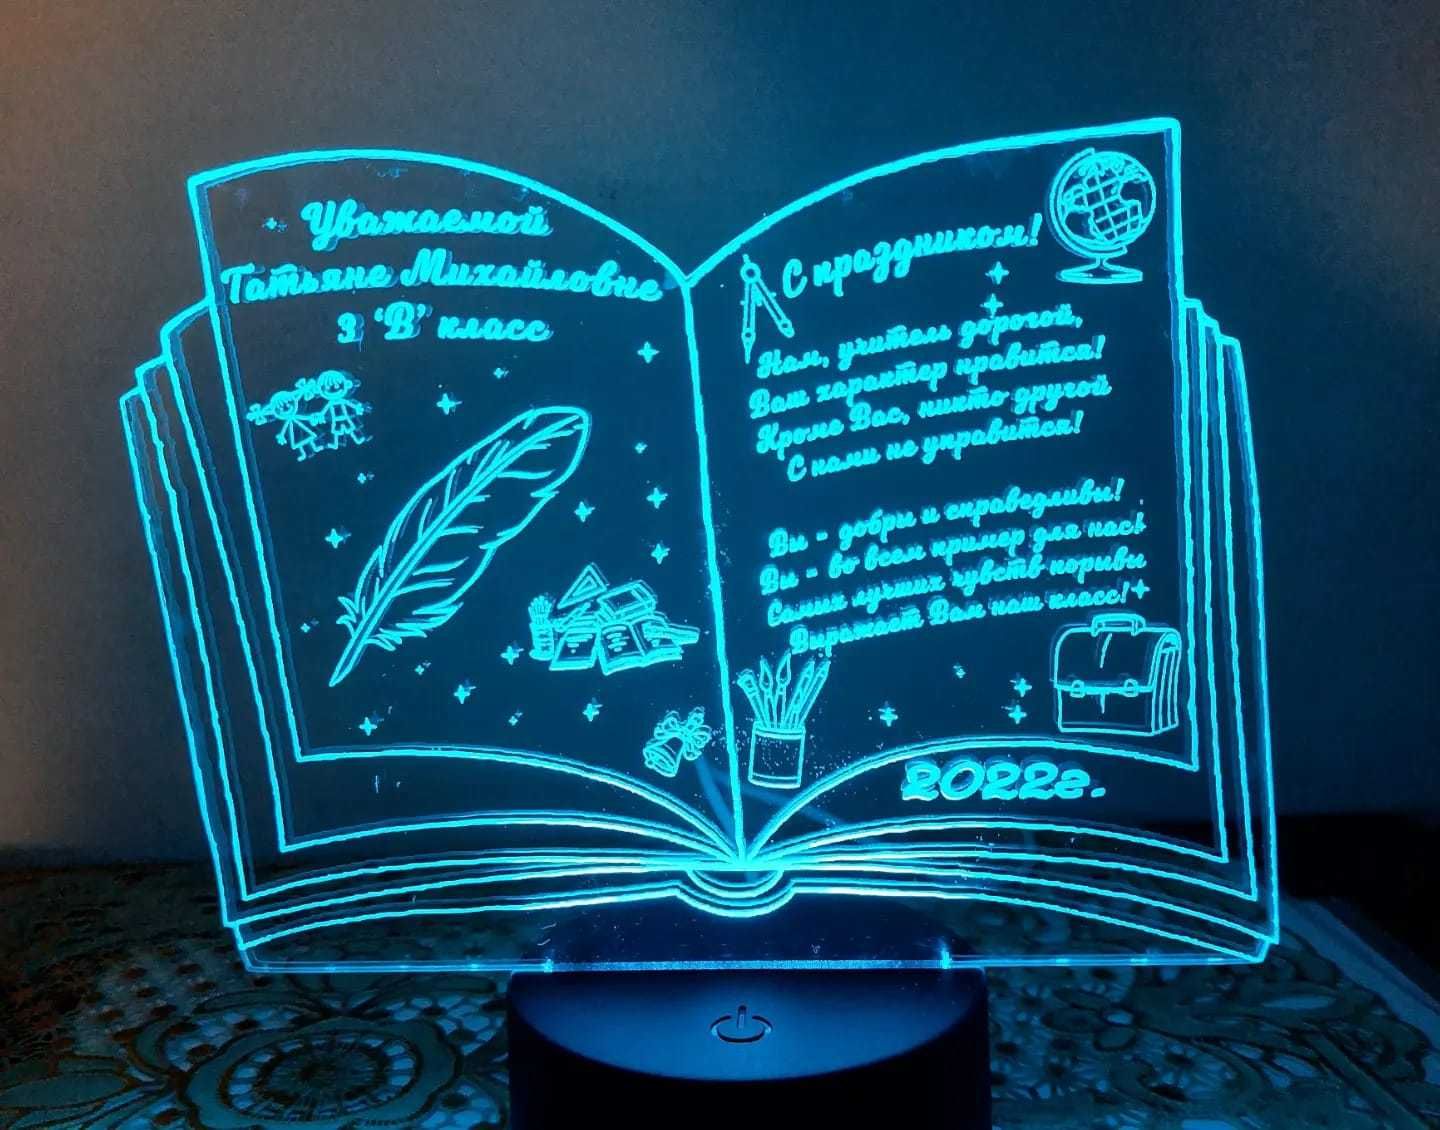 Уважаемой
Татьяне Михайловне
3 'В' класс
С праздником!
Нам, учитель дорогой,
Ваш характер нравится!
Кроме Вас, никто другой
С нами не управится!
Вы - добры и справедливы!
Вы - во всем пример для нас!
Самых лучших чувств порывы
Выражает Вам наш класс!
2022г.